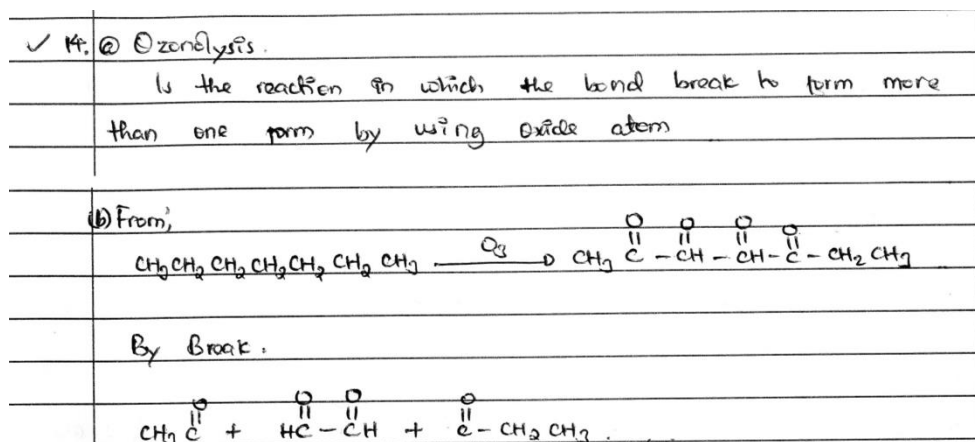 ✓ 14. (a) Ozonolysis.
Is the reaction in which the bond break to form more
than one form by using oxide atom
(b) From;
CH3CH2CH2CH2CH2CH2CH3 —O3→ CH3 C(=O) - CH(=O) - CH(=O) - C(=O) - CH2CH3
By Break.
CH3 C(=O) + HC(=O) - CH(=O) + C(=O) - CH2CH3.